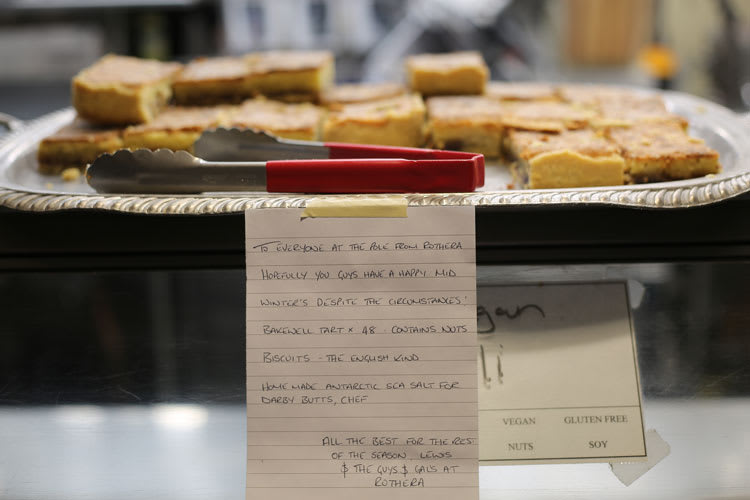 TO EVERYONE AT THE POLE FROM ROTHERA
HOPEFULLY YOU GUYS HAVE A HAPPY MID
WINTER'S DESPITE THE CIRCUMSTANCES!
BAKEWELL TART × 48 - CONTAINS NUTS
BISCUITS - THE ENGLISH KIND
HOME MADE ANTARCTIC SEA SALT FOR
DARBY BUTTS, CHEF
ALL THE BEST FOR THE REST
OF THE SEASON, LEWIS
$ THE GUYS $ GALS AT
ROTHERA
gan
li
VEGAN GLUTEN FREE
NUTS SOY